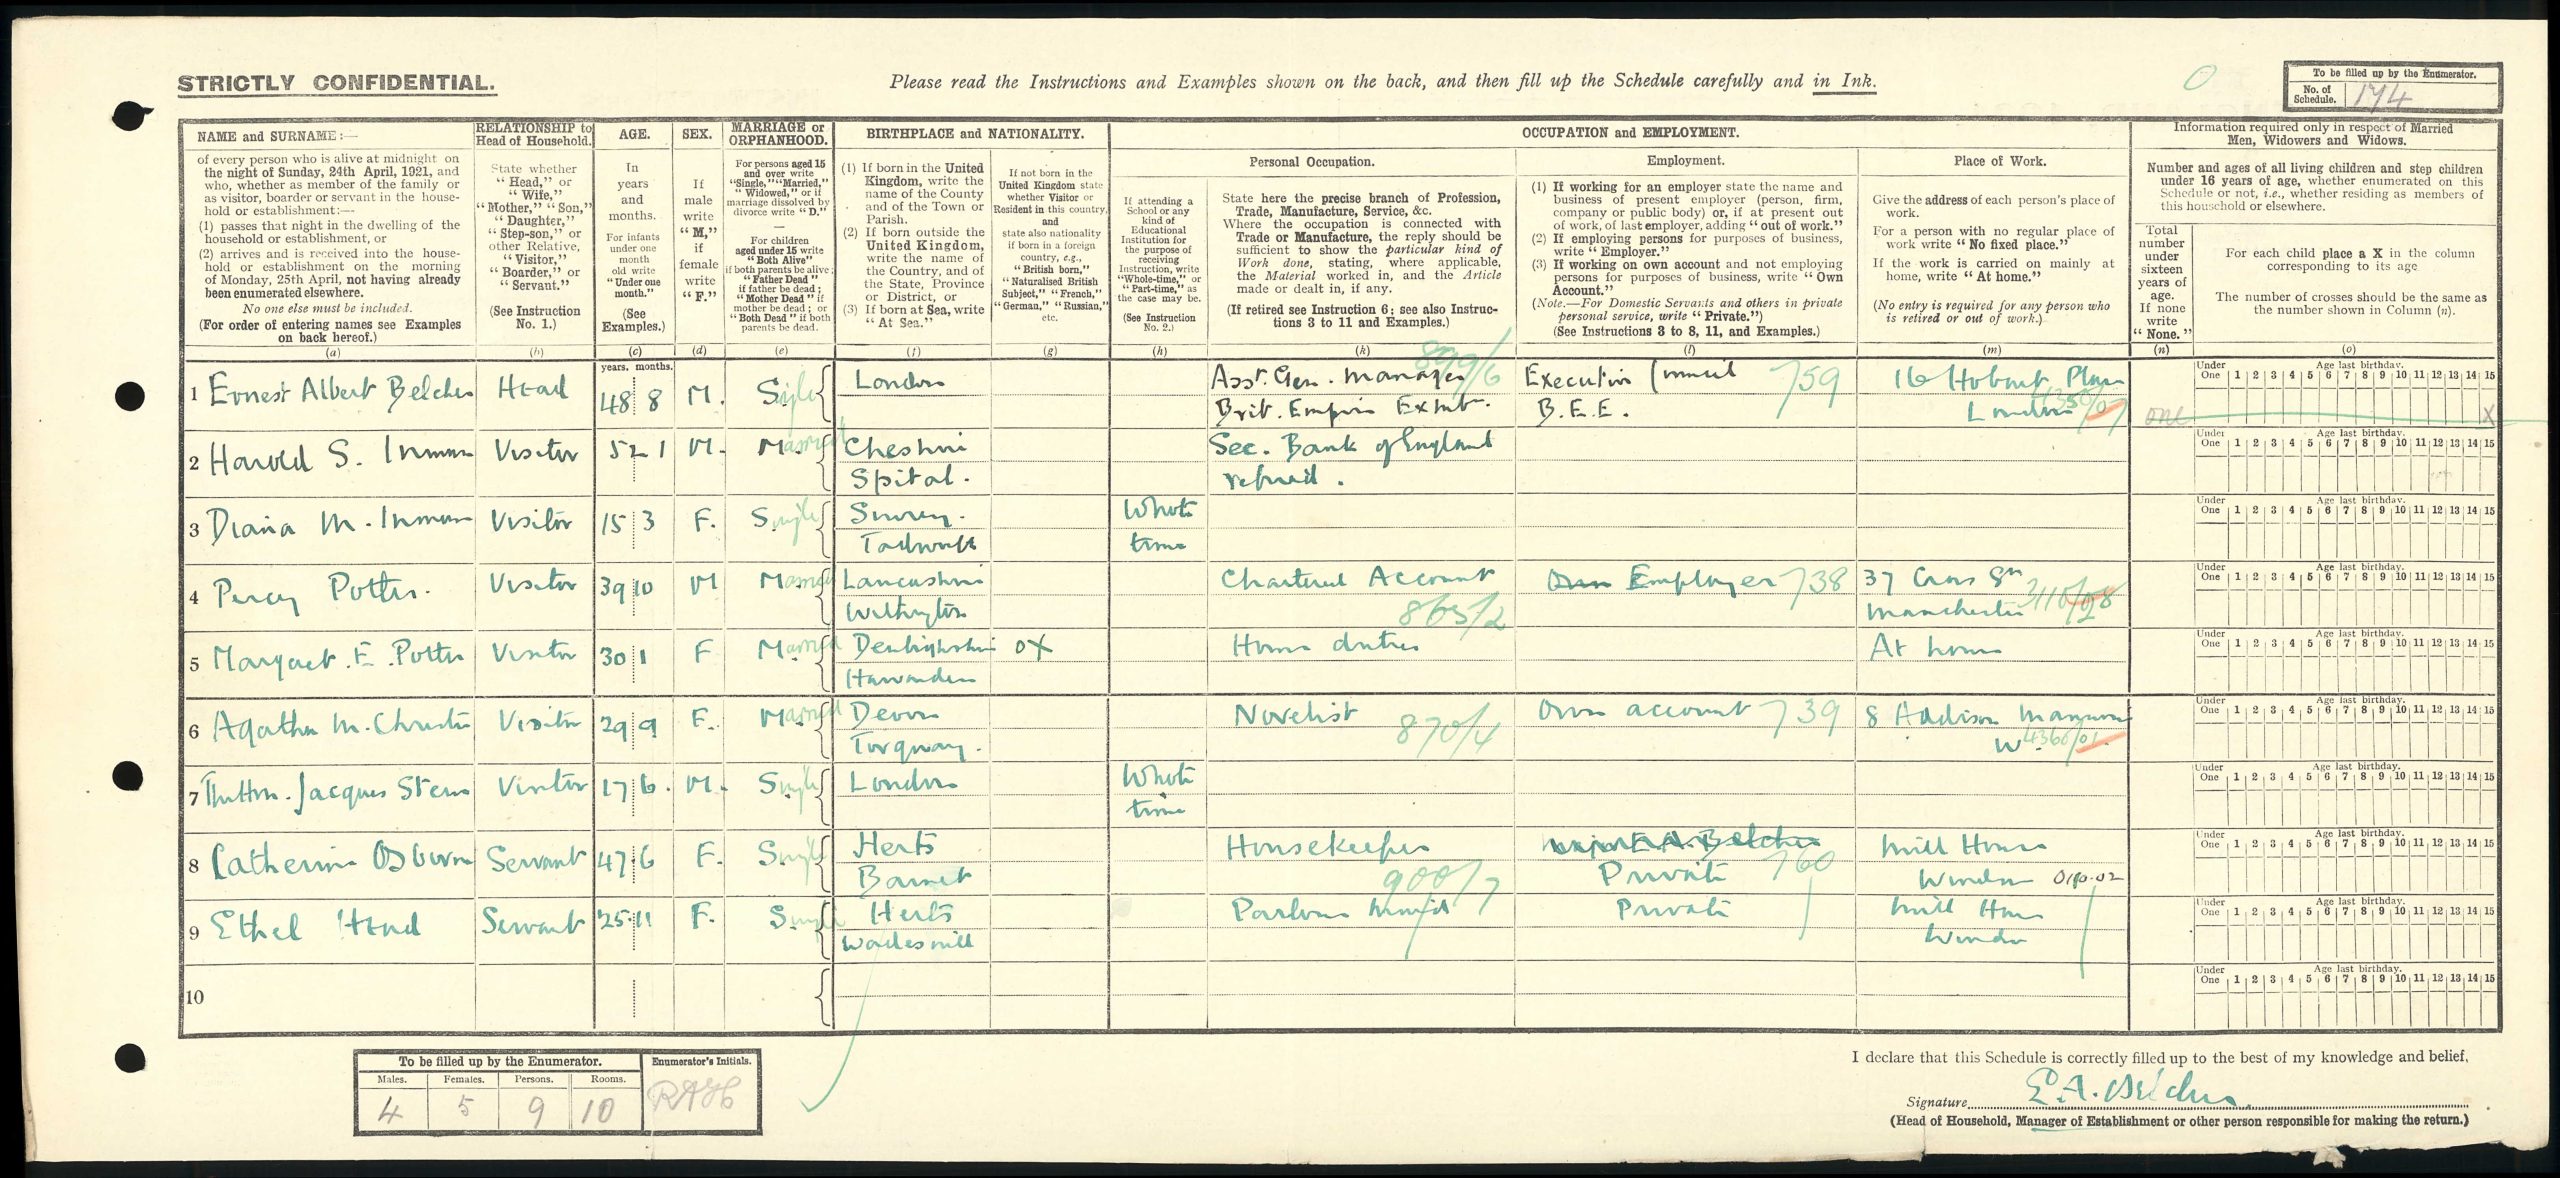 STRICTLY CONFIDENTIAL.
Please read the Instructions and Examples shown on the back, and then fill up the Schedule carefully and in Ink.
0
To be filled up by the Enumerator.
No. of Schedule. 174
NAME and SURNAME:—
of every person who is alive at midnight on
the night of Sunday, 24th April, 1921, and
who, whether as member of the family or
as visitor, boarder or servant in the house-
hold or establishment:—
(1) passes that night in the dwelling of the
household or establishment, or
(2) arrives and is received into the house-
hold or establishment on the morning
of Monday, 25th April, not having already
been enumerated elsewhere.
No one else must be included.
(For order of entering names see Examples
on back hereof.)
(a)
RELATIONSHIP to
Head of Household.
State whether
"Head," or
"Wife,"
"Mother," "Son,"
"Daughter,"
"Step-son," or
other Relative,
"Visitor,"
"Boarder," or
"Servant."
(See Instruction
No. 1.)
(b)
AGE.
In
years
and
months.
For infants
under one
month
old write
"Under one
month."
(See
Examples.)
(c)
SEX.
If
male
write
"M,"
if
female
write
"F."
(d)
MARRIAGE or
ORPHANHOOD.
For persons aged 15
and over write
"Single," "Married,"
"Widowed," or if
marriage dissolved by
divorce write "D."
—
For children
aged under 15 write
"Both Alive"
if both parents be alive;
"Father Dead"
if father be dead;
"Mother Dead" if
mother be dead; or
"Both Dead" if both
parents be dead.
(e)
BIRTHPLACE and NATIONALITY.
(1) If born in the United
Kingdom, write the
name of the County
and of the Town or
Parish.
(2) If born outside the
United Kingdom,
write the name of
the Country, and of
the State, Province
or District, or
(3) If born at Sea, write
"At Sea."
(f)
If not born in the
United Kingdom state
whether Visitor or
Resident in this country,
and
state also nationality
if born in a foreign
country, e.g.,
"British born,"
"Naturalised British
Subject," "French,"
"German," "Russian,"
etc.
(g)
OCCUPATION and EMPLOYMENT.
If attending a
School or any
kind of
Educational
Institution for
the purpose of
receiving
Instruction, write
"Whole-time," or
"Part-time," as
the case may be.
(See Instruction
No. 2.)
(h)
Personal Occupation.
State here the precise branch of Profession,
Trade, Manufacture, Service, &c.
Where the occupation is connected with
Trade or Manufacture, the reply should be
sufficient to show the particular kind of
Work done, stating, where applicable,
the Material worked in, and the Article
made or dealt in, if any.
(If retired see Instruction 6; see also Instruc-
tions 3 to 11 and Examples.)
(k)
Employment.
(1) If working for an employer state the name and
business of present employer (person, firm,
company or public body) or, if at present out
of work, of last employer, adding "out of work."
(2) If employing persons for purposes of business,
write "Employer."
(3) If working on own account and not employing
persons for purposes of business, write "Own
Account."
(Note.—For Domestic Servants and others in private
personal service, write "Private.")
(See Instructions 3 to 8, 11, and Examples.)
(l)
Place of Work.
Give the address of each person's place of
work.
For a person with no regular place of
work write "No fixed place."
If the work is carried on mainly at
home, write "At home."
(No entry is required for any person who
is retired or out of work.)
(m)
Information required only in respect of Married
Men, Widowers and Widows.
Number and ages of all living children and step children
under 16 years of age, whether enumerated on this
Schedule or not, i.e., whether residing as members of
this household or elsewhere.
Total
number
under
sixteen
years of
age.
If none
write
"None."
(n)
For each child place a X in the column
corresponding to its age
The number of crosses should be the same as
the number shown in Column (n).
(o)
years. months.
1 Ernest Albert Belcher Head 48 8 M. Single London Asst. Gen. Manager 899/6 Executive Council 759 16 Hobart Place
Brit. Empire Exhib. B.E.E. London one X
Under One Age last birthday. 1 2 3 4 5 6 7 8 9 10 11 12 13 14 15
2 Harold S. Inman Visitor 52 1 M. Married Cheshire Sec. Bank of England
Spital. retired.
Under One Age last birthday. 1 2 3 4 5 6 7 8 9 10 11 12 13 14 15
3 Diana M. Inman Visitor 15 3 F. Single Surrey. Whole
Tadworth time
Under One Age last birthday. 1 2 3 4 5 6 7 8 9 10 11 12 13 14 15
4 Percy Potter. Visitor 39 10 M Married Lancashire Chartered Account Own Employer 738 37 Cross St
Withington 863/2 Manchester
Under One Age last birthday. 1 2 3 4 5 6 7 8 9 10 11 12 13 14 15
5 Margaret E. Potter Visitor 30 1 F Married Denbighshire OX Home duties At home
Hawarden
Under One Age last birthday. 1 2 3 4 5 6 7 8 9 10 11 12 13 14 15
6 Agatha M. Christie Visitor 29 9 F. Married Devon Novelist Own account 739 8 Addison Mansions
Torquay. 870/4 W 4360/01
Under One Age last birthday. 1 2 3 4 5 6 7 8 9 10 11 12 13 14 15
7 Jacques Stern Visitor 17 6. M. Single London Whole
time
Under One Age last birthday. 1 2 3 4 5 6 7 8 9 10 11 12 13 14 15
8 Catherine Osborne Servant 47 6 F. Single Herts Housekeeper Major E. A. Belcher Mill House
Barnet 900/7 Private 760 Windsor
Under One Age last birthday. 1 2 3 4 5 6 7 8 9 10 11 12 13 14 15
9 Ethel Head Servant 25 11 F. Single Herts Parlour maid Private Mill House
Wadesmill Windsor
Under One Age last birthday. 1 2 3 4 5 6 7 8 9 10 11 12 13 14 15
10
Under One Age last birthday. 1 2 3 4 5 6 7 8 9 10 11 12 13 14 15
To be filled up by the Enumerator.
Males. Females. Persons. Rooms.
4 5 9 10
Enumerator's Initials.
RAH
I declare that this Schedule is correctly filled up to the best of my knowledge and belief,
Signature E. A. Belcher.
(Head of Household, Manager of Establishment or other person responsible for making the return.)